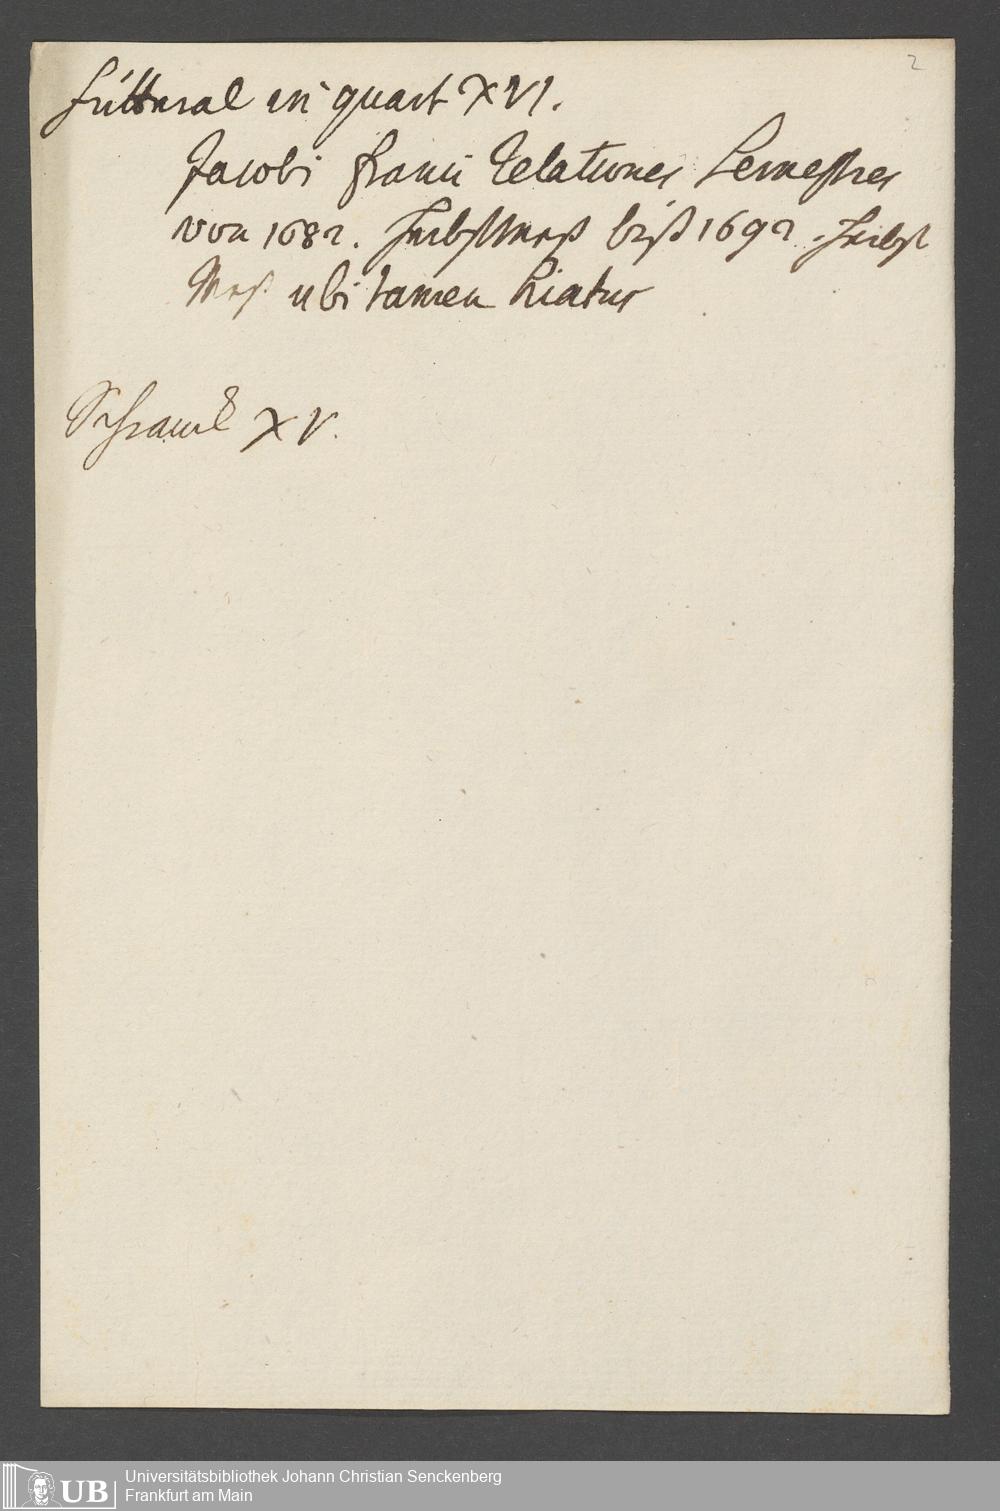 2
Futteral in quart XVI.
Jacobi Franci Relationes Semestres
von 1682. Herbstmeß biß 1692. Herbst
Meß ubi tamen hiatus
Schranck XV.
UB
Universitätsbibliothek Johann Christian Senckenberg
Frankfurt am Main